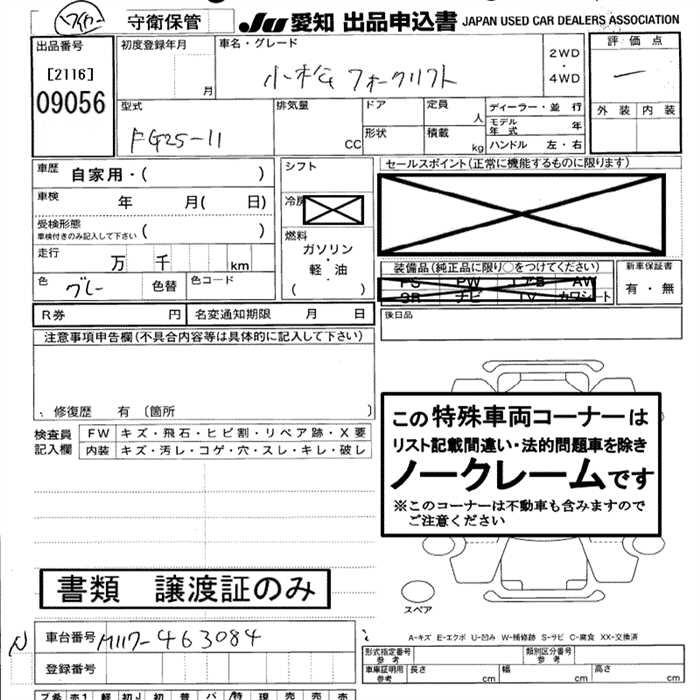 守衛保管 JU 愛知 出品申込書 JAPAN USED CAR DEALERS ASSOCIATION
出品番号
[2116]
09056
初度登録年月
月
車名・グレード
小松 フォークリフト
2WD
・
4WD
評価点
ー
外装 内装
型式
FG25-11
排気量
CC
ドア
形状
定員
人
積載
kg
ディーラー・並行
モデル年式 年
ハンドル 左・右
車歴
自家用・( )
車検
年 月( 日)
受検形態
車検付きのみ記入して下さい
( )
走行
万 千 km
色
グレー
色替
色コード
シフト
冷房
燃料
ガソリン
軽・油
( )
セールスポイント(正常に機能するものに限ります)
装備品(純正品に限り○をつけてください)
PS PW エアB AW
SR ナビ TV カワシート
新車保証書
有・無
R券 円
名変通知期限 月 日
後日品
注意事項申告欄(不具合内容等は具体的に記入して下さい)
修復歴 有 〔箇所 〕
検査員
記入欄
FW キズ・飛石・ヒビ割・リペア跡・X要
内装 キズ・汚レ・コゲ・穴・スレ・キレ・破レ
この特殊車両コーナーは
リスト記載間違い・法的問題車を除き
ノークレームです
※このコーナーは不動車も含みますので
ご注意ください
書類 譲渡証のみ
スペア
A-キズ E-エクボ U-凹み W-補修跡 S-サビ C-腐食 XX-交換済
N
車台番号
M117-463084
登録番号
形式指定番号
参考
類別区分番号
参考
車庫証明用
参考
長さ cm
幅 cm
高さ cm